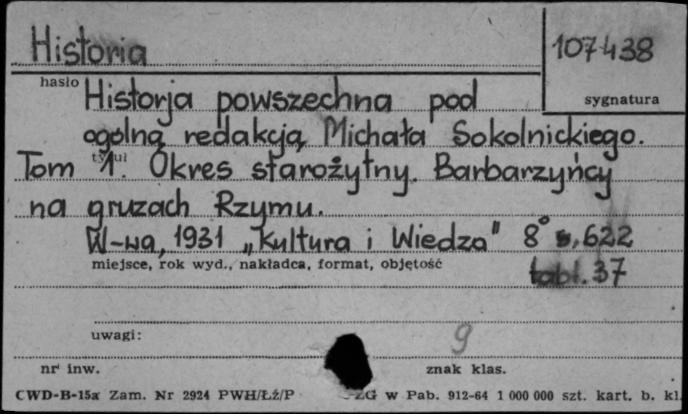 Historia
107438
hasło
sygnatura
Historja powszechna pod
ogolną redakcją Michała Sokolnickiego.
tytuł
Tom 1. Okres starożytny. Barbarzyńcy
na gruzach Rzymu.
W-wa, 1931 „Kultura i Wiedza" 8° s, 622
miejsce, rok wyd., nakładca, format, objętość
tabl. 37
uwagi:
9
nr inw.
znak klas.
CWD-B-15a Zam. Nr 2924 PWH/Łź/P
ZG w Pab. 912-64 1 000 000 szt. kart. b. kl.